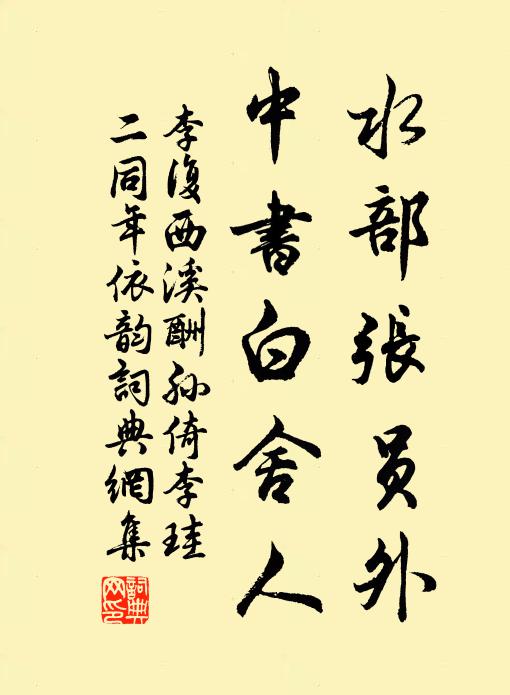 水部張員外
中書白舍人
李復西溪酬孙倚李珪
二同年依韵詞典網集
詞典網印